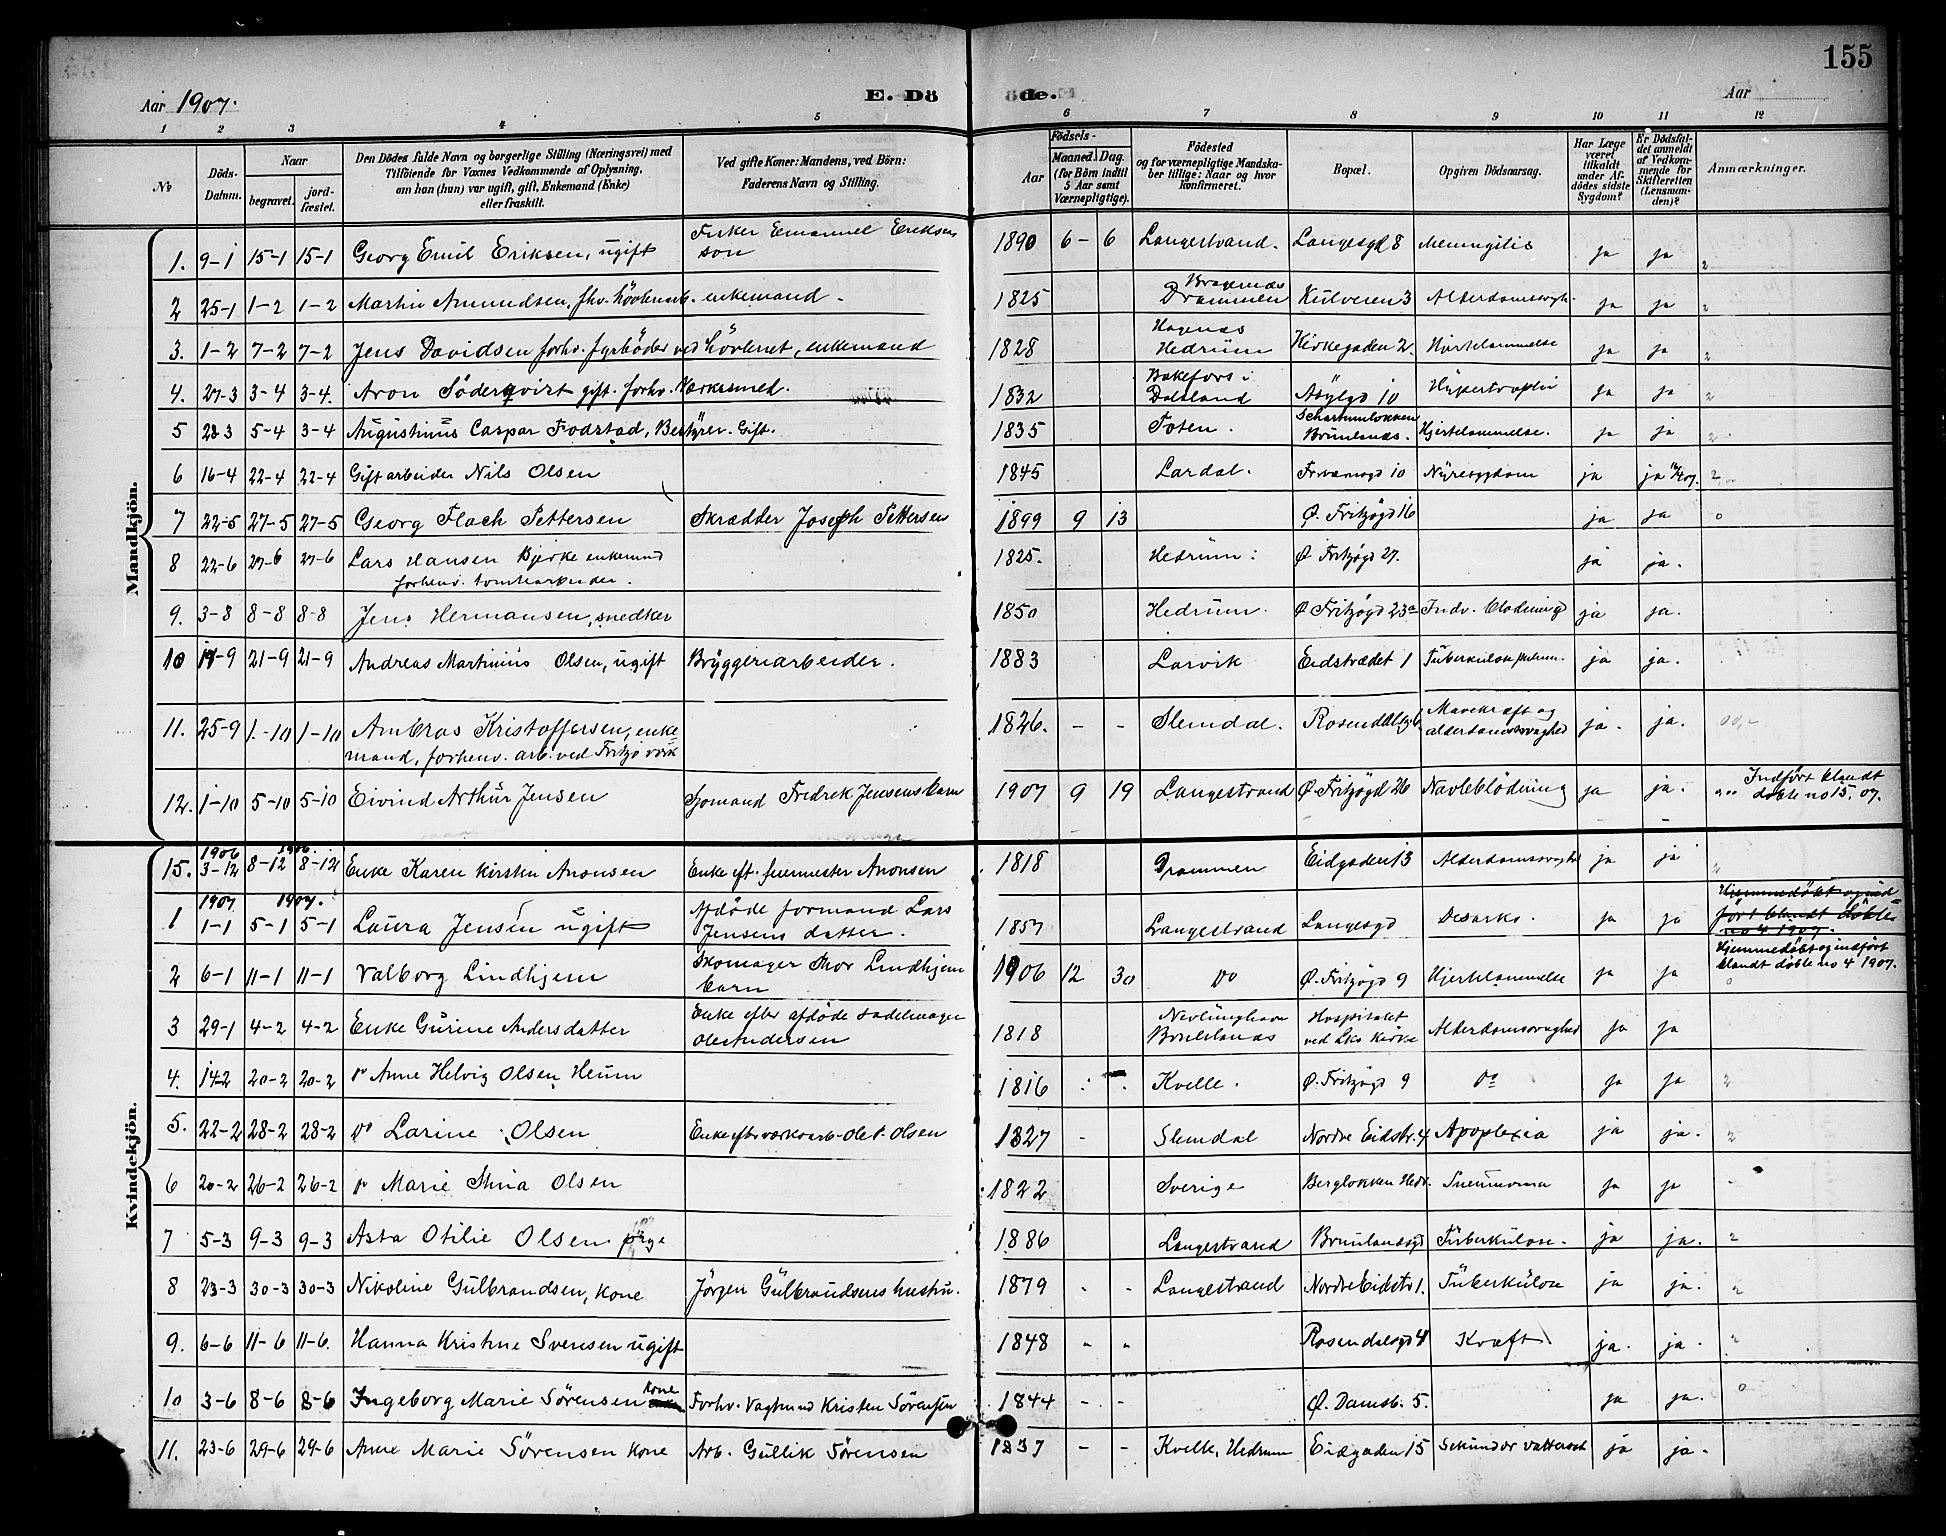 155
Aar 1907. E. Döde. Aar
1 2 3 4 5 6 7 8 9 10 11 12
No
Döds-Datum.
Naar
begravet.
jordfæstet.
Den Dödes fulde Navn og borgerlige Stilling (Næringsvei) med
Tilföiende for Voxnes Vedkommende af Oplysning,
om han (hun) var ugift, gift, Enkemand (Enke)
eller fraskilt.
Ved gifte Koner: Mandens, ved Börn:
Faderens Navn og Stilling.
Födsels-
Aar
Maaned. Dag.
(for Börn indtil
5 Aar samt
Værnepligtige).
Födested
og for værnepligtige Mandska-
ber tillige: Naar og hvor
konfirmeret.
Bopæl.
Opgiven Dödsaarsag.
Har Læge
været
tilkaldt
under Af-
dödes sidste
Sygdom?
Er Dödsfal-
det anmeldt
af Vedkom-
mende for
Skifteretten
(Lensman-
den)?
Anmærkninger.
Mandkjön.
1. 9-1 15-1 15-1 Georg Emil Eriksen, ugift Fisker Emanuel Eriksens son 1890 6- 6 Langestrand. Langesgd 8 Meningitis ja ja
2 25-1 1-2 1-2 Martin Amundsen, fhv. hövleriarb. enkemand. 1825 Bragernes Drammen Kulveien 3 Alderdomssvagh. ja ja
3. 1-2 7-2 7-2 Jens Davidsen forhv. fyrböder ved hövleriet, enkemand 1828 Hagenæs Hedrum Kirkegaden 2. Hjertelammelse ja ja
4. 27-3 3-4 3-4. Aron Söderqvist gift. forhv. Værksmed. 1832 Bakefors i Dalsland Asylgd 10 Hypertrophi ja ja
5 28-3 5-4 3-4 Augustinus Caspar Fodstad, Bestyrer. Gift. 1835 Toten. Brunlanæs. Hjertelammelse. ja ja
6 16-4 22-4 22-4 Gift arbeider Nils Olsen 1845 Lardal. 10 Nyresygdom ja ja
7 22-5 27-5 27-5 Georg Flach Pettersen Skrædder Joseph Pettersen 1899 9 13 Ø. Fritzøgd 16 ja ja
8 22-6 27-6 27-6 Lars Hansen Bjerke enkemand forhenv. tomtearbeider. 1825. Hedrum: Ø Fritzøgd 27. ja ja.
9. 3-8 8-8 8-8 Jens Hermansen, snedker 1850 Hedrum. Ø. Fritzøgd 23a Indv. Blödning ja ja.
10 17-9 21-9 21-9 Andreas Martinius Olsen, ugift Bryggeriarbeider. 1883 Larvik Eidstrædet 1 Tuberkulose pulm. ja ja.
11. 25-9 1.-10 1-10 Ambros Kristoffersen, enkemand, forhenv. arb. ved Fritzö værk 1826. - - Slemdal. Rosendalgd 6 Mavekræft og alderdomssvaghed ja. ja.
12. 1-10 5-10 5-10 Eivind Arthur Jensen Sjömand Fredrek Jensens barn 1907 9 19 Langestrand Ø. Fritzøgd 26 Navleblödning ja ja. Indført blandt døbte no 15. 07.
Kvindekjön.
15. 1906 3-12 1906. 8-12 8-12 Enke Karen Kirstin Aronsen Enke eft. fuermester Aronsen 1818 Drammen Eidgaden 13 Alderdomssvaghed ja ja
1 1907 1-1 1907. 5-1 5-1 Laura Jensen ugift Afdöde formand Lars Jensens datter. 1857 Langestrand Langesgd ja ja Hjemmedøbt og indført blandt døbte no 4 1907.
2 6-1 11-1 11-1 Valborg Lindhjem Skomager Thor Lindhjem barn 1906 12 30 Do Ø. Fritzøgd 9 Hjertelammelse ja ja Hjemmedøbt og indført blandt døbte no 4 1907.
3 29-1 4-2 4-2 Enke Gurine Andersdatter Enke efter afdöde sadelmager Ole Andersen 1818 Nevlunghavn Brunlanæs Hospitalet ved Lks kirke Alderdomssvaghed ja ja
4. 14-2 20-2 20-2 Do Anne Helvig Olsen Heum 1816 Kvelle. Ø. Fritzøgd 9 Do ja ja
5. 22-2 28-2 28-2 Do Larine Olsen Enke efter værksarb. Ole T. Olsen 1827 - Slemdal Nordre Eidstr. 4 Apoplexia ja ja.
6 20-2 26-2 26-2 Do Marie Stina Olsen 1822 Sverige Bergløkken Hedr. Pneumonia ja ja
7 5-3 9-3 9-3 Asta Otilie Olsen pige 1886 Langestrand Brunlanæsgd Tuberkulose. ja ja.
8 23-3 30-3 30-3 Nikoline Gulbrandsen, kone Jörgen Gulbrandsens hustru. 1879 - - Langestrand Nordre Eidstr 1. Tuberkulose ja ja.
9. 6-6 11-6 11-6. Hanna Kristine Svensen ugift 1848 - - Rosendalsgd 4 Kræft ja. ja.
10 3-6 8-6 8-6 Ingeborg Marie Sørensen kone Forhv. Vagtmand Kristen Sørensen 1844 - - Ø. Damsb. 5. ja ja.
11. 23-6 29-6 29-6 Anne Marie Sørensen kone Arb. Gullik Sørensen 1837 - - Kvelle, Hedrum Eidgaden 15 Sekundær vattersot ja ja.